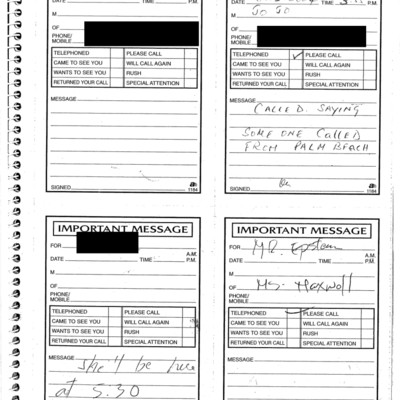 DATE TIME P.M.
M Jo Jo
OF
PHONE/
MOBILE
TELEPHONED ✓ PLEASE CALL
CAME TO SEE YOU WILL CALL AGAIN
WANTS TO SEE YOU RUSH
RETURNED YOUR CALL SPECIAL ATTENTION
MESSAGE
CALLED. SAYING
SOMEONE CALLED
FROM PALM BEACH
SIGNED 1184
DATE TIME P.M.
M
OF
PHONE/
MOBILE
TELEPHONED PLEASE CALL
CAME TO SEE YOU WILL CALL AGAIN
WANTS TO SEE YOU RUSH
RETURNED YOUR CALL SPECIAL ATTENTION
MESSAGE
SIGNED 1184
IMPORTANT MESSAGE
FOR
A.M.
DATE TIME P.M.
M
OF
PHONE/
MOBILE
TELEPHONED PLEASE CALL
CAME TO SEE YOU WILL CALL AGAIN
WANTS TO SEE YOU RUSH
RETURNED YOUR CALL SPECIAL ATTENTION
MESSAGE
She'll be here
at 5.30
IMPORTANT MESSAGE
FOR MR. Epstein
A.M.
DATE TIME P.M.
M Ms. Maxwell
OF
PHONE/
MOBILE
TELEPHONED PLEASE CALL
CAME TO SEE YOU WILL CALL AGAIN
WANTS TO SEE YOU RUSH
RETURNED YOUR CALL SPECIAL ATTENTION
MESSAGE